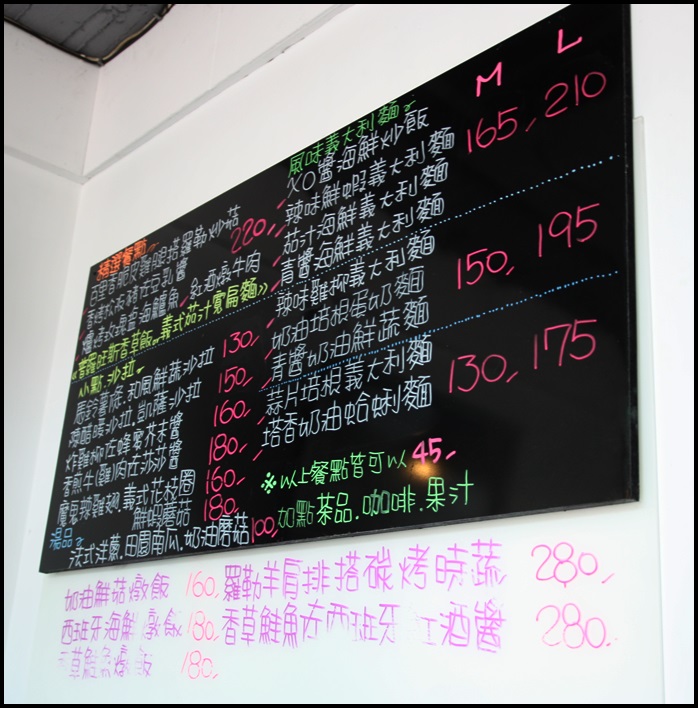 精選餐點
百里香脆皮雞腿搭羅勒炒菇 220,
香烤松阪豬佐白乳醬
海鱸魚, 紅酒燉牛肉
香草飯 義式茄汁寬扁麵
小點.沙拉
和風鮮蔬沙拉 130,
凱薩沙拉 150,
炸雞柳佐蜂蜜芥末醬 160,
香煎牛(雞)肉佐莎莎醬 180,
魔鬼辣雞翅, 義式花枝圈 160,
鮮蝦蘑菇 180,
湯品
法式洋蔥.田園南瓜.奶油蘑菇 100,
M L
風味義大利麵
XO醬海鮮炒飯 165, 210
辣味鮮蝦義大利麵
茄汁海鮮義大利麵
青醬海鮮義大利麵
辣味雞柳義大利麵 150, 195
奶油培根蛋奶麵
青醬奶油鮮蔬麵
蒜片培根義大利麵 130, 175
塔香奶油蛤蜊麵
※以上餐點皆可以 45,
加點茶品.咖啡.果汁
奶油鮮菇燉飯 160,
西班牙海鮮燉飯 180,
草鮭魚燉飯 180,
羅勒羊肩排搭碳烤時蔬 280,
香草鮭魚佐西班牙紅酒醬 280,